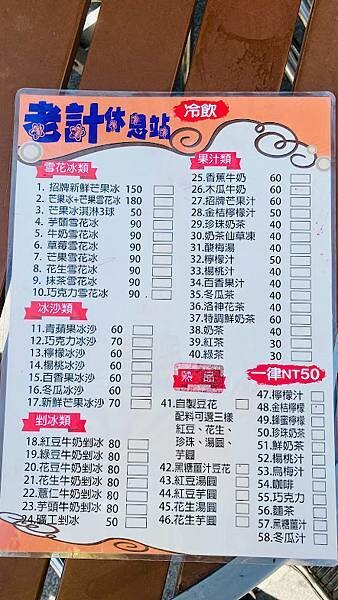 老計休息站
冷飲
雪花冰類
1. 招牌新鮮芒果冰 150
2. 芒果冰+芒果雪花冰 180
3. 芒果冰淇淋3球 50
4. 芋頭雪花冰 90
5. 牛奶雪花冰 90
6. 草莓雪花冰 90
7. 芒果雪花冰 90
8. 花生雪花冰 90
9. 抹茶雪花冰 90
10.巧克力雪花冰 90
冰沙類
11.青蘋果冰沙 60
12.巧克力冰沙 70
13.檸檬冰沙 60
14.楊桃冰沙 60
15.百香果冰沙 60
16.冬瓜冰沙 60
17.新鮮芒果冰沙 70
剉冰類
18.紅豆牛奶剉冰 80
19.綠豆牛奶剉冰 80
20.花豆牛奶剉冰 80
21.花生牛奶剉冰 80
22.薏仁牛奶剉冰 80
23.芋頭牛奶剉冰 80
24.礦工剉冰 50
果汁類
25.香蕉牛奶 60
26.木瓜牛奶 60
27.招牌芒果汁 60
28.金桔檸檬汁 50
29.珍珠奶茶 50
30.奶茶仙草凍 40
31.酸梅湯 40
32.檸檬汁 50
33.楊桃汁 40
34.百香果汁 60
35.冬瓜茶 40
36.洛神花茶 40
37.特調鮮奶茶 60
38.奶茶 40
39.紅茶 30
40.綠茶 30
熱 品
41.自製豆花
配料可選三樣
紅豆、花生、
珍珠、湯圓、
芋圓
42.黑糖薑汁豆花
43.紅豆湯圓
44.紅豆芋圓
45.花生湯圓
46.花生芋圓
一律NT50
47.檸檬汁
48.金桔檸檬
49.蜂蜜檸檬
50.珍珠奶茶
51.鮮奶茶
52.楊桃汁
53.烏梅汁
54.咖啡
55.巧克力
56.麵茶
57.黑糖薑汁
58.冬瓜汁